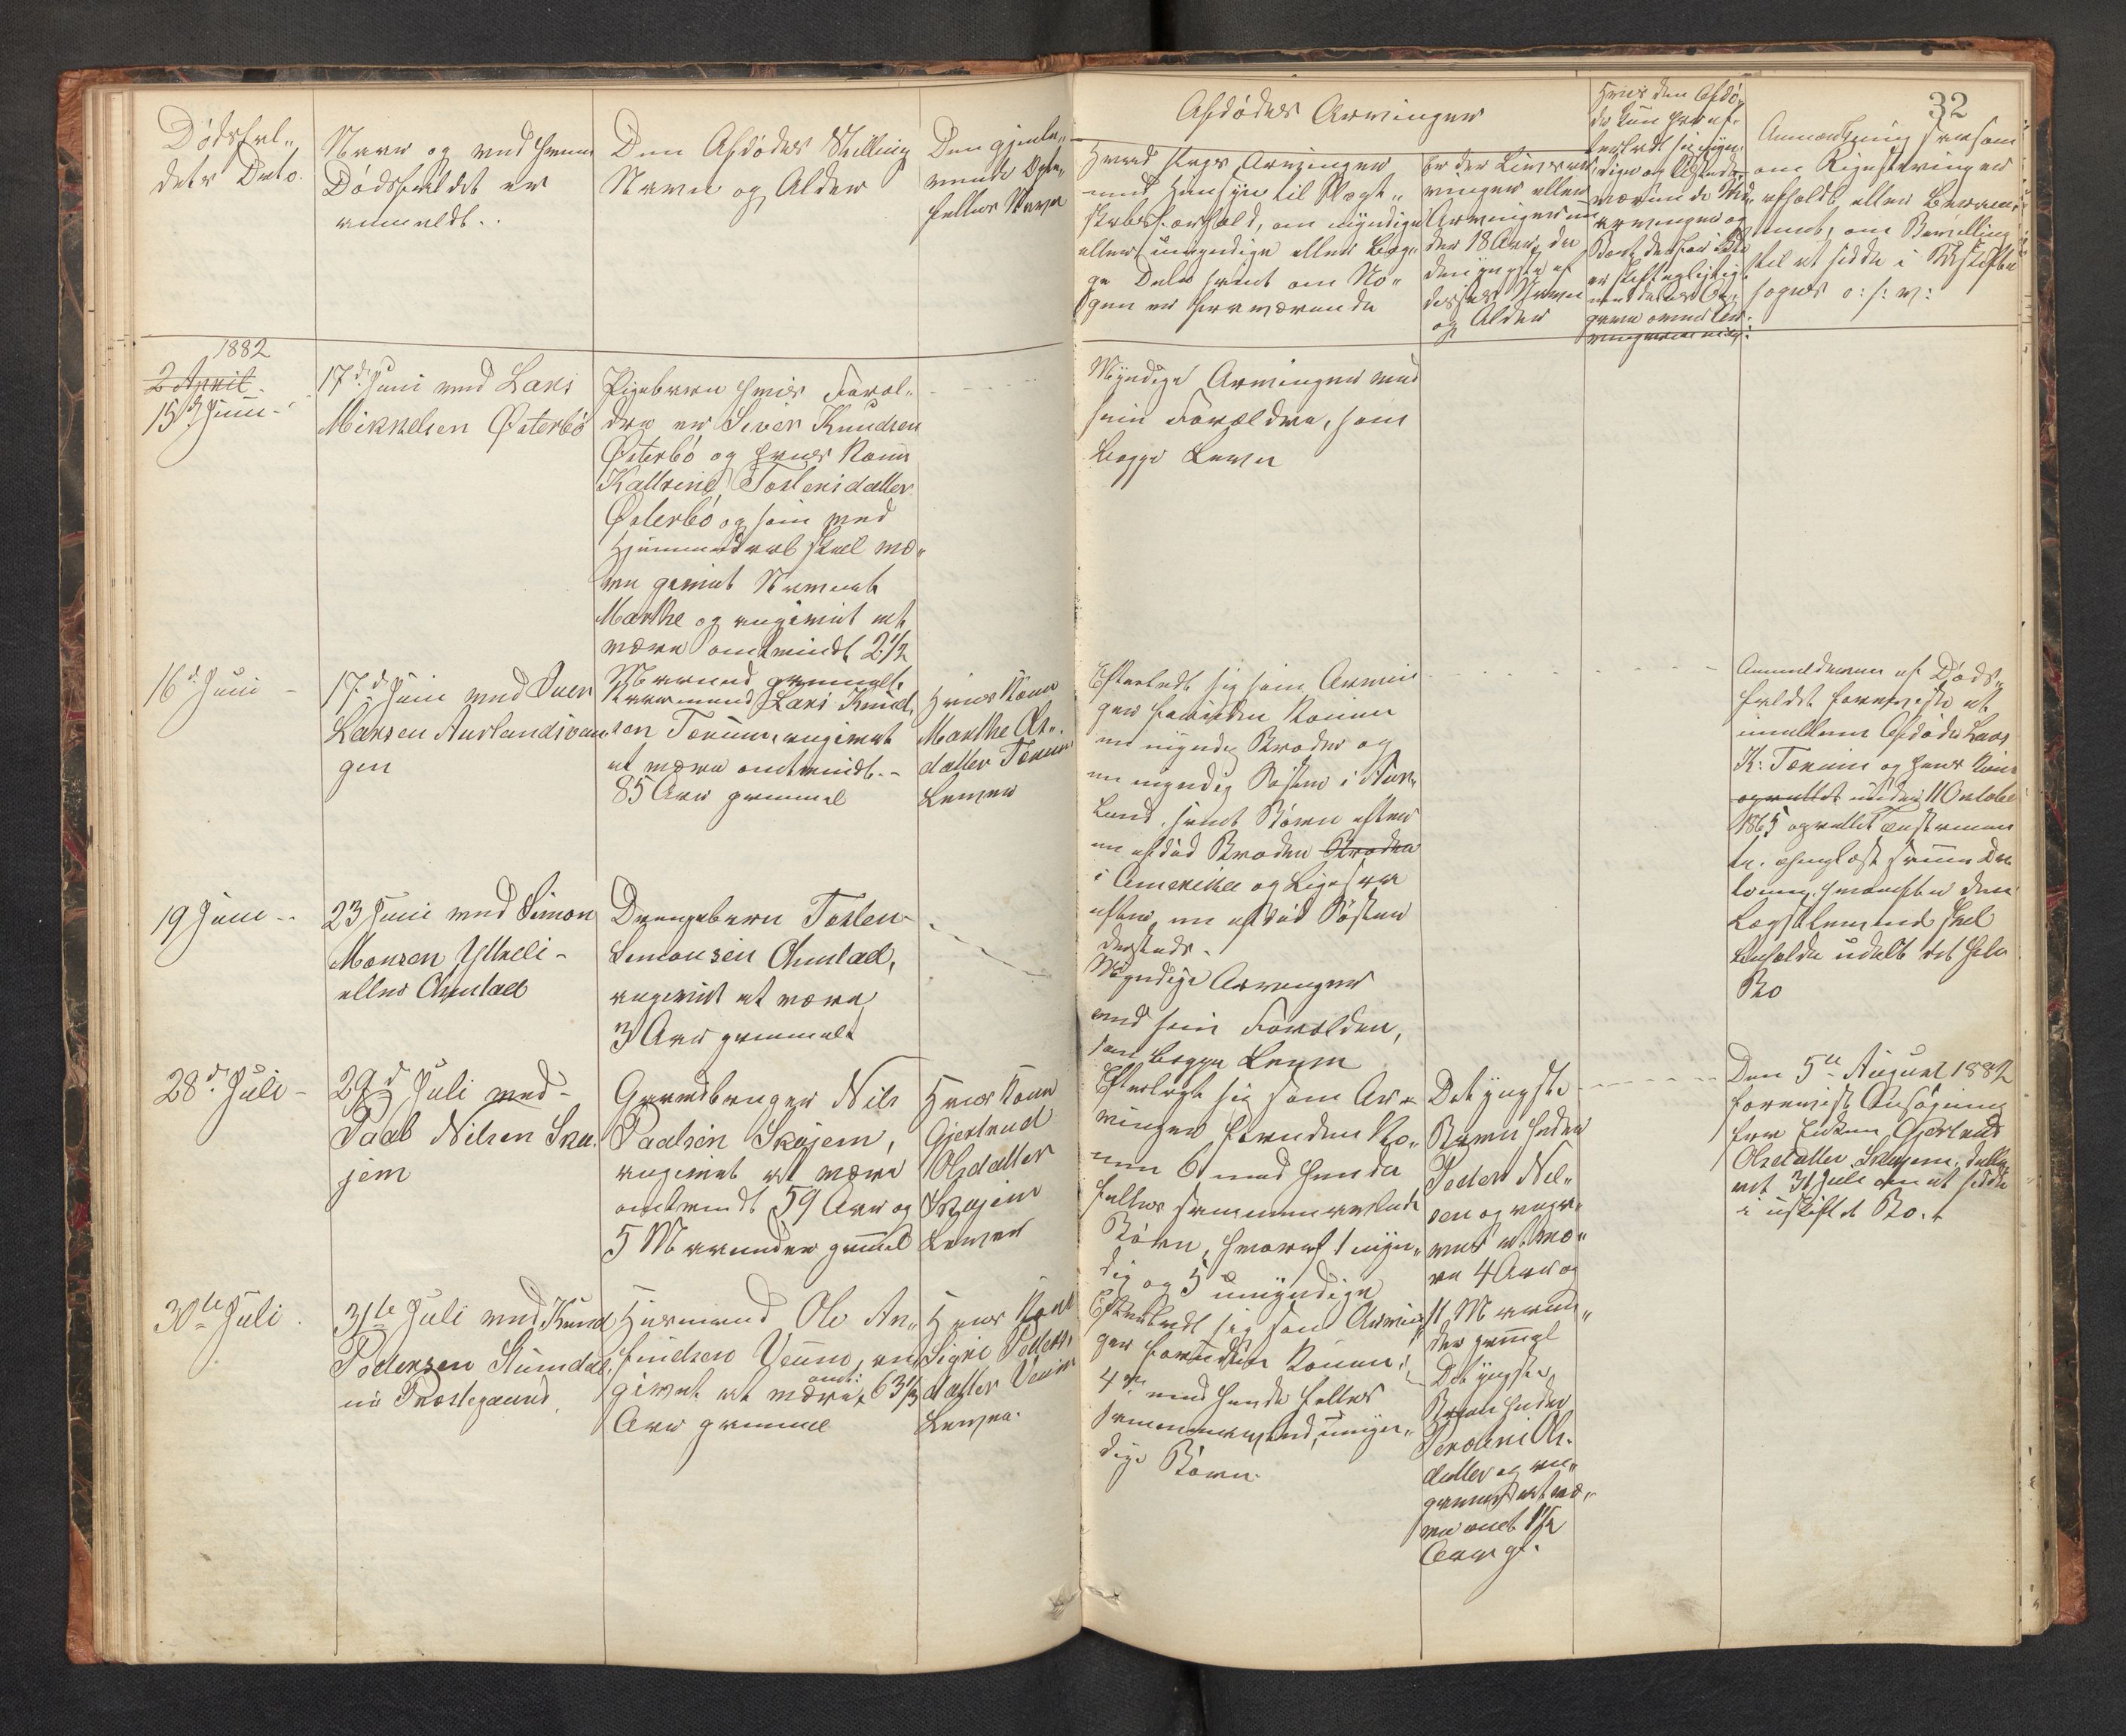 32
Dødsfal„
dets Dato.
Naar og med hvem
Dødsfaldet er
anmeldt.
Den Afdødes Stilling
Navn og Alder
Den gjenle„
vende Ægte„
fælles Navn
Afdødes Arvinger
Hvad slags Arvinger
med Hensyn til Slægt„
skabsforhold, om myndige
eller umyndige eller beg„
ge Dele samt om No„
gen er fraværende
Er der Livsar
vinger eller
Arvinger un
der 18 Aar, da
den yngste af
disses Navn
og Alder
Hvis den Afdø„
de kun har ef„
terladt sig myn
dige og tilstede
værende
arvinger og
Boet derfor ikke
Anmærkning saasom
om Registreringen
afholdt eller Beram„
met, om Bevilling
til at sidde i Uskifte
søges o: s: v:
1882
2 April
15 Juni
17d Juni med Lars
Mikkelsen Østerbø
Pigebarn hvis Foræl„
dre er Siver Knudsen
Østerbø og hans Kone
Kattrine Tostensdatter
Østerbø og som ved
Hjemmedaab skal væ„
re givet Navnet
Marthe og angivet at
være omtrendt 2½
Maaned gammelt
Myndige Arvinger ved
sine Forældre, som
begge Lever
16d Juni
17d Juni med Iver
Larsen Aurlandsvan
gen
Kaarmand Lars Knud
sen Terum, angivet
at være omtrendt
85 Aar gammel
Hans Kone
Marthe Ols„
datter Terum
Lever
Efterladt sig som Arvin
ger foruden Konen
en myndig Broder og
en myndig Søster i Aur„
land, samt Børn efter
en afdød Broder Broder
i Amerika og Ligesaa
efter en afdød Søster
dersteds.
Anmelderen af Døds„
faldet foreviste et
imellem Afdøde Lars
K: Terum og hans Kone
oprettet under 11 Oktober
1865 oprettet Testamen
te.
Længstlevende skal
beholde udelt det hele
Bo
19 Juni
23 Juni med Simon
Monsen Ytreli
eller Onstad
Drengebarn Tosten
Simonsen Onstad,
angivet at være
3 Aar gammelt
Myndige Arvinger
ved sine Forældre,
som begge Lever
28d Juli
29d Juli med
Paal Nilsen Ska
jem
Gaardbruger Nils
Paalsen Skajem,
angivet at være
omtrendt 59 Aar og
5 Maaneder gammel
Hans Kone
Gjertrud
Olsdatter
Skajem
Lever
Efterlagt sig som Ar„
vinger foruden Ko„
nen 6 med hende
fælles sammenavlede
Børn, hvoraf 1 myn„
dig og 5 umyndige
Det yngste
Barn heder
Peder Nil„
sen og angi„
vet at væ„
re 4 Aar og
11 Maane„
der gammel
Den 5te August 1882
forevist Ansøgning
fra Enken Gjertrud
Olsdatter Skajem, date
ret 31 Juli om at sidde
i uskiftet Bo.
30te Juli
31te Juli med Knud
Pedersen Stundal
nu Præstegaard.
Husmand Ole An„
findsen Veum, an
givet at være omt: 63⅓
Aar gammel
Hans Kone
Signe Peders
datter Veum
Lever
Efterladt sig som Arvin
ger foruden Konen
4re med hende fælles
sammenavlede, umyn„
dige Børn.
Det yngste
Barn heder
Perdine Ols„
datter og an„
givet at væ„
re omt 1½
Aar gl.